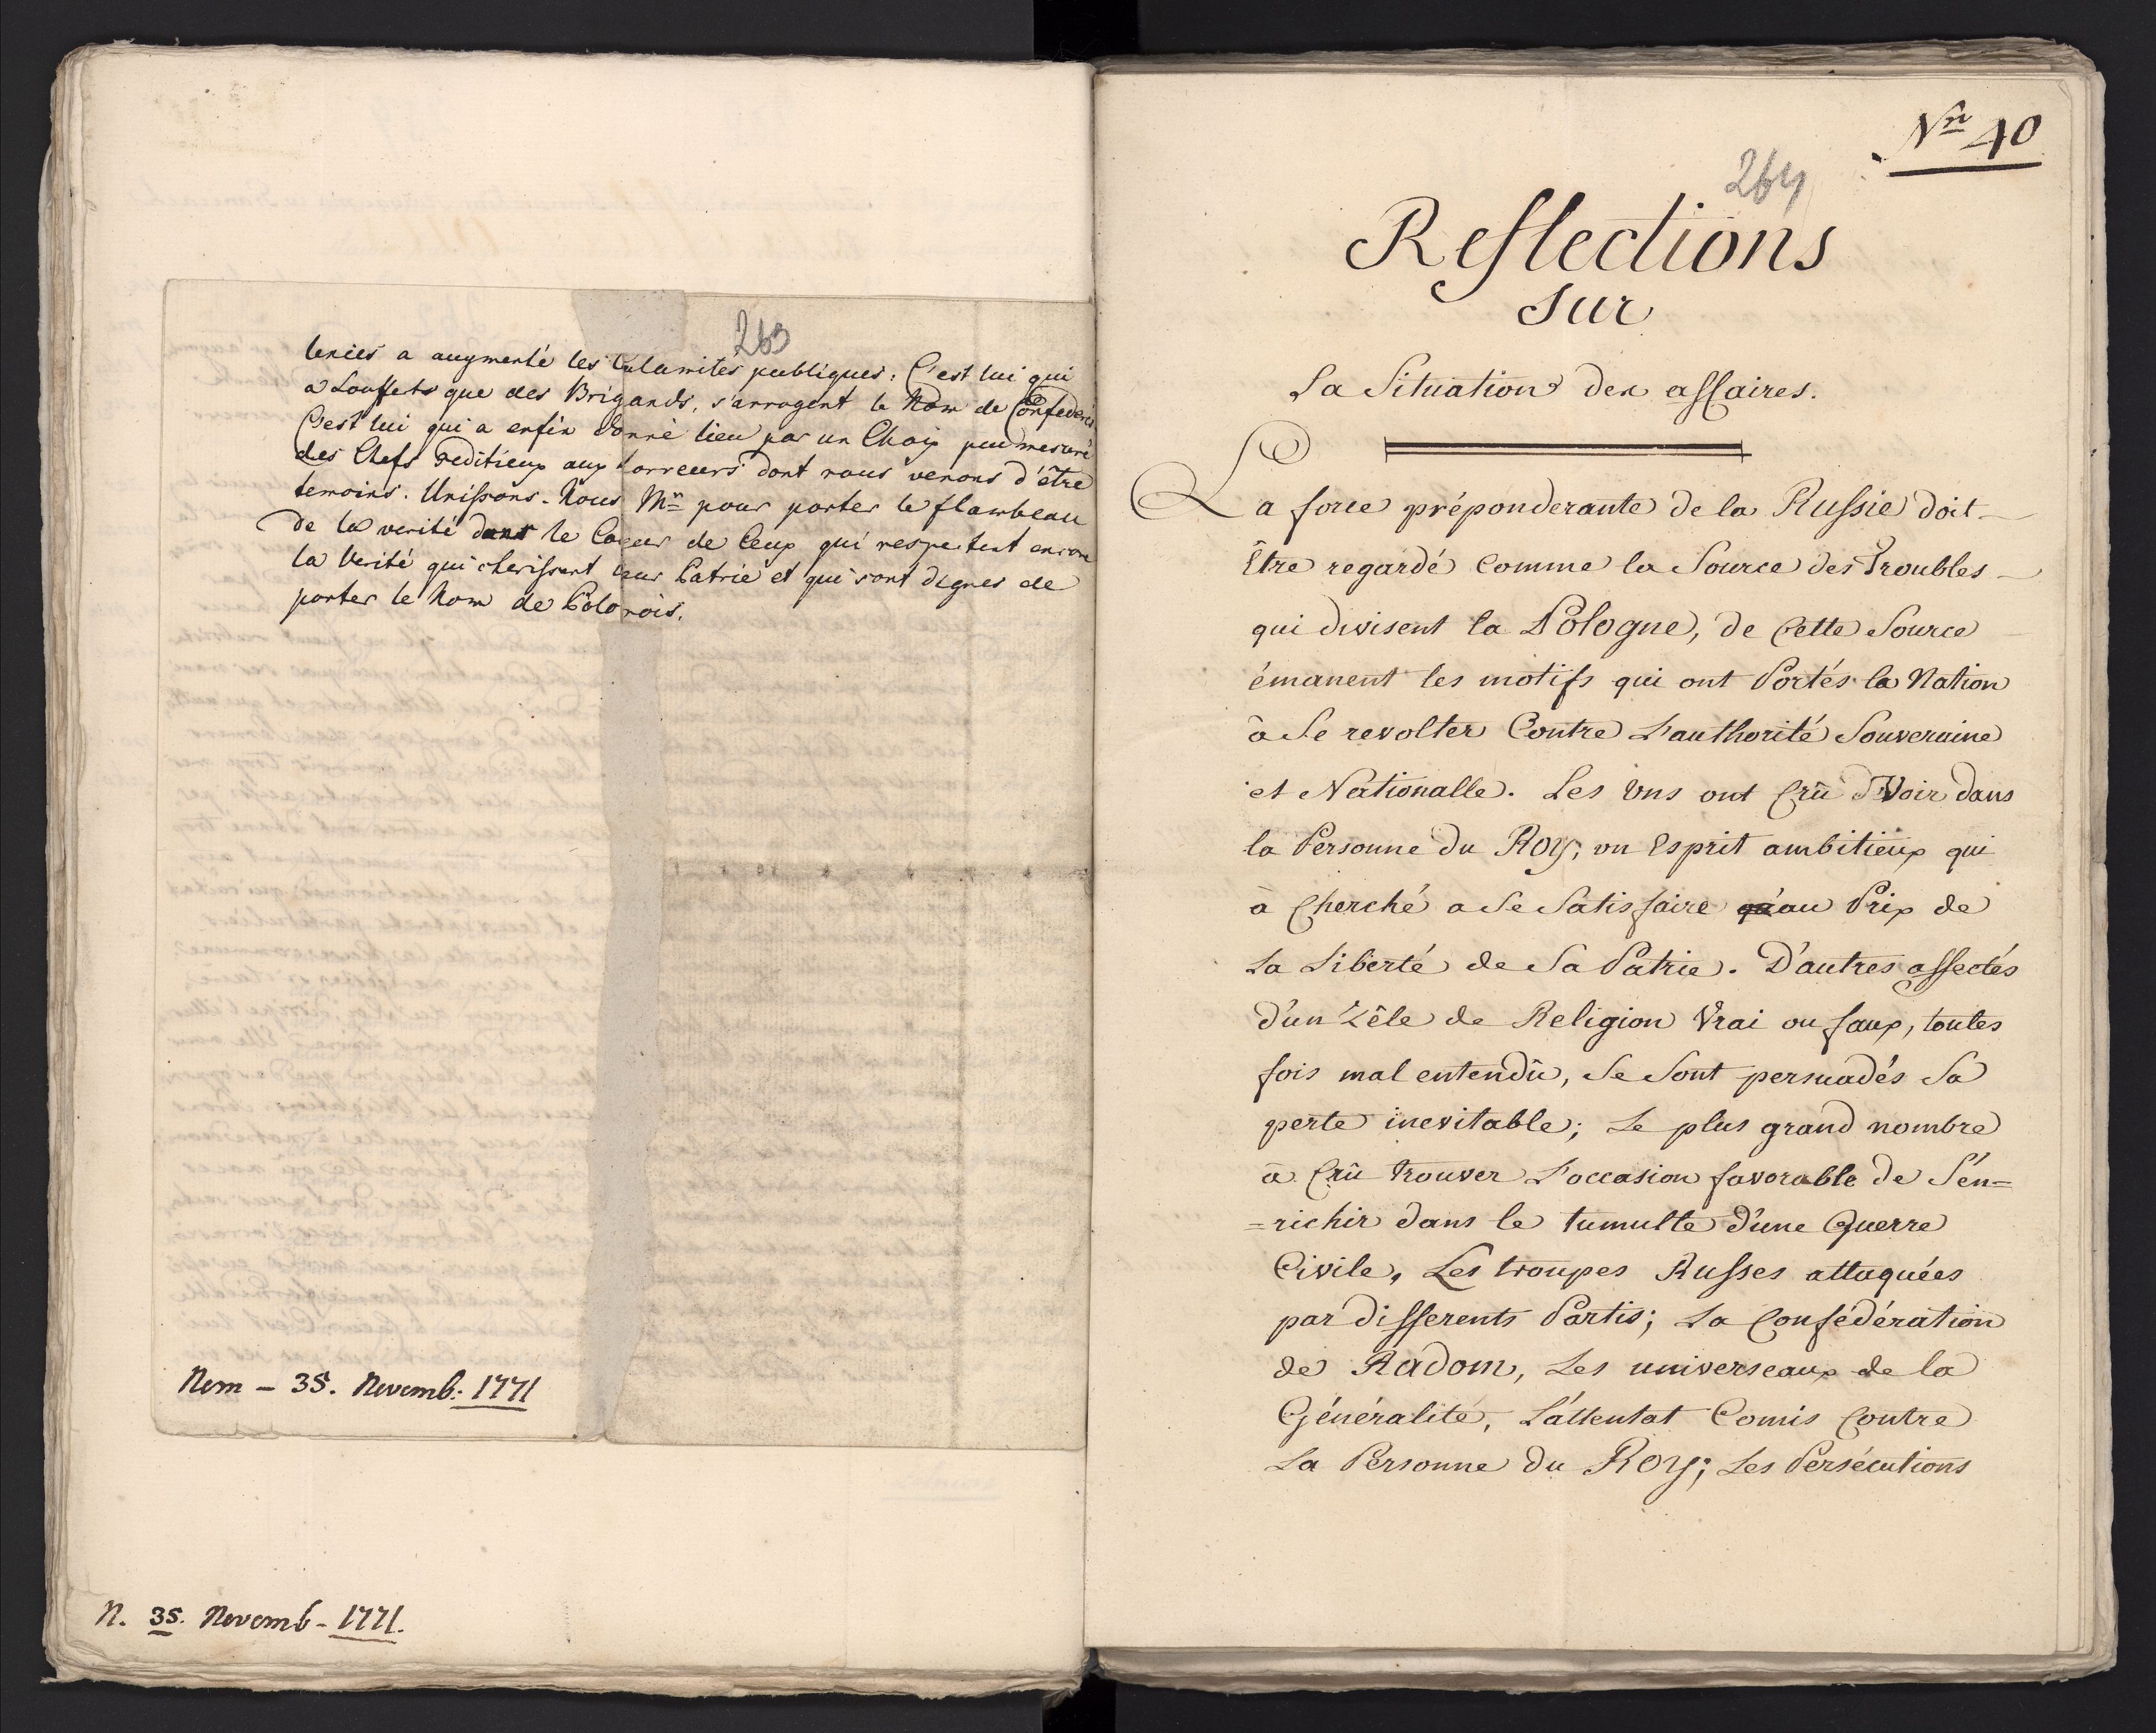 263
lencies a augmenté les Calamités publiques: C'est lui qui
a Souffert que des Brigands, s'arrogent le Nom de Confederés
C'est lui qui a enfin donné lieu par un Choix peu mesuré
des Chefs seditieux aux horreurs dont nous venons d'être
temoins. Unissons-Nous Mrs pour porter le flambeau
de la verité dans le Coeur de Ceux qui respectent encore
la Verité qui cherissent leur Patrie et qui sont dignes de
porter le Nom de Polonois.
Nem - 35. Novemb: 1771
N. 35. Novemb - 1771.
Nro 40
264
Reflections
sur
La Situation des affaires.
La force préponderante de la Russie doit
Être regardé Comme la Source des Troubles
qui divisent la Pologne, de Cette Source
émanent les motifs qui ont Portés la Nation
à Se revolter Contre L'authorité Souveraine
et Nationalle. Les Uns ont Crû Voir dans
la Personne du ROY, un Esprit ambitieux qui
à Cherché a Se Satisfaire qu'au Prix de
La Liberté de Sa Patrie. D'autres affectés
d'un Zêle de Religion Vrai ou faux, toutes
fois mal entendû, Se Sont persuadés Sa
perte inevitable; Le plus grand nombre
à Crû trouver L'occasion favorable de S'én=
=richir dans le tumulte d'une Guerre
Civile, Les troupes Russes attaquées
par differents Partis; La Confédération
de Radom, Les universeaux de la
Généralité, L'áttentat Comis Contre
La Personne du ROY; Les Persécutions